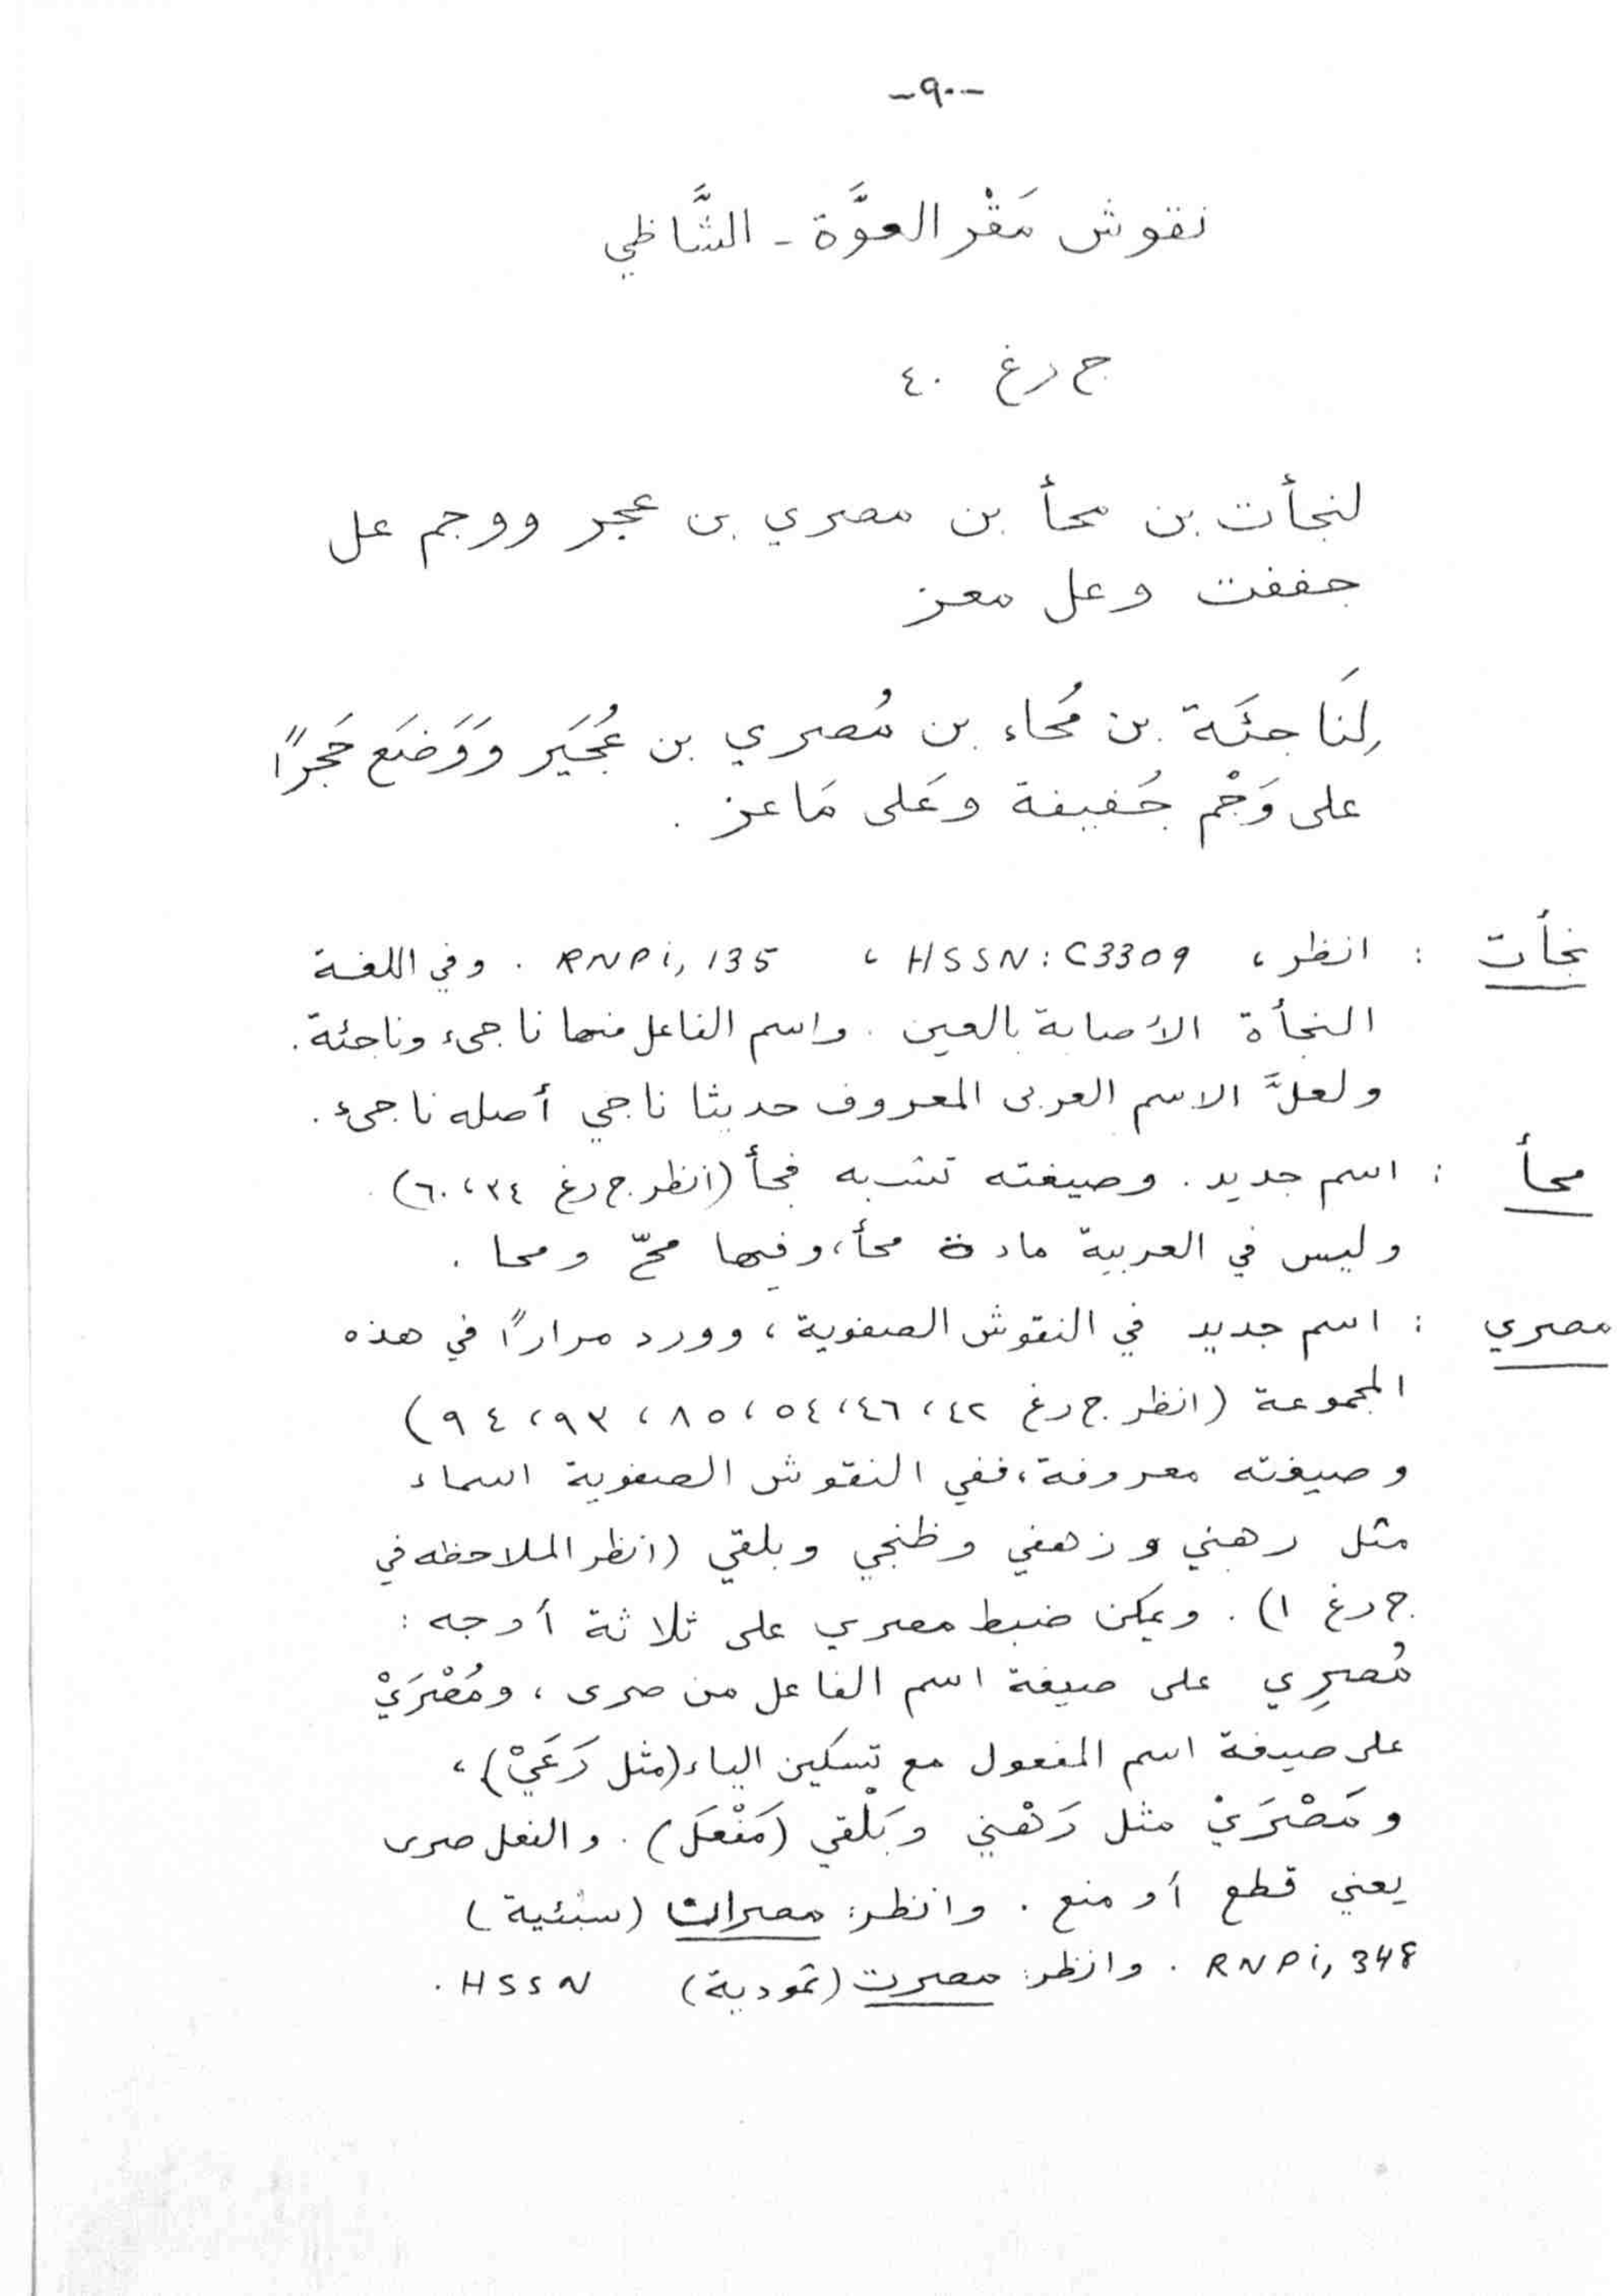 -٩٠-
نقوش مَقْر العوَّة - الشَّاظي
ج رغ ٤٠
لنجأت بن محأ بن مصري بن عجر ووجم عل
جففت وعل معز
لِنَاجئَة بن مُحاء بن مُصري بن عُجَير وَوَضَع حَجرًا
على وَجْم جُفيفة وعَلى مَاعز .
نجأت : انظر ، HSSN : C3309 ، RNPi, 135 . وفي اللغة
النجأة الأصابة بالعين . واسم الفاعل منها ناجىء وناجئة .
ولعلَّ الاسم العربى المعروف حديثا ناجي أصله ناجىء .
محأ : اسم جديد . وصيغته تشبه فجأ (انظر ج رغ ٣٤ ، ٦٠) .
وليس في العربية مادة محأ ، وفيها محّ ومحا .
مصري : اسم جديد في النقوش الصفوية ، وورد مرارًا في هذه
المجموعة (انظر ج رغ ٤٢ ، ٤٦ ، ٥٤ ، ٨٥ ، ٩٣ ، ٩٤)
وصيغته معروفة ، ففي النقوش الصفوية اسماء
مثل رهني وزهفي وظنجي وبلقي (انظر الملاحظه في
ج رغ ١) . ويمكن ضبط مصري على ثلاثة أوجه :
مُصرِي على صيغة اسم الفاعل من صرى ، ومُصْرَيْ
على صيغة اسم المفعول مع تسكين الياء (مثل رَعَيْ) ،
ومَصْرَيْ مثل رَهْني وبَلْقي (مَفْعَل) . والفعل صرى
يعني قطع أو منع . وانظر : مصرات (سبئية)
RNPi, 348 . وانظر : مصرت (ثمودية) HSSN .